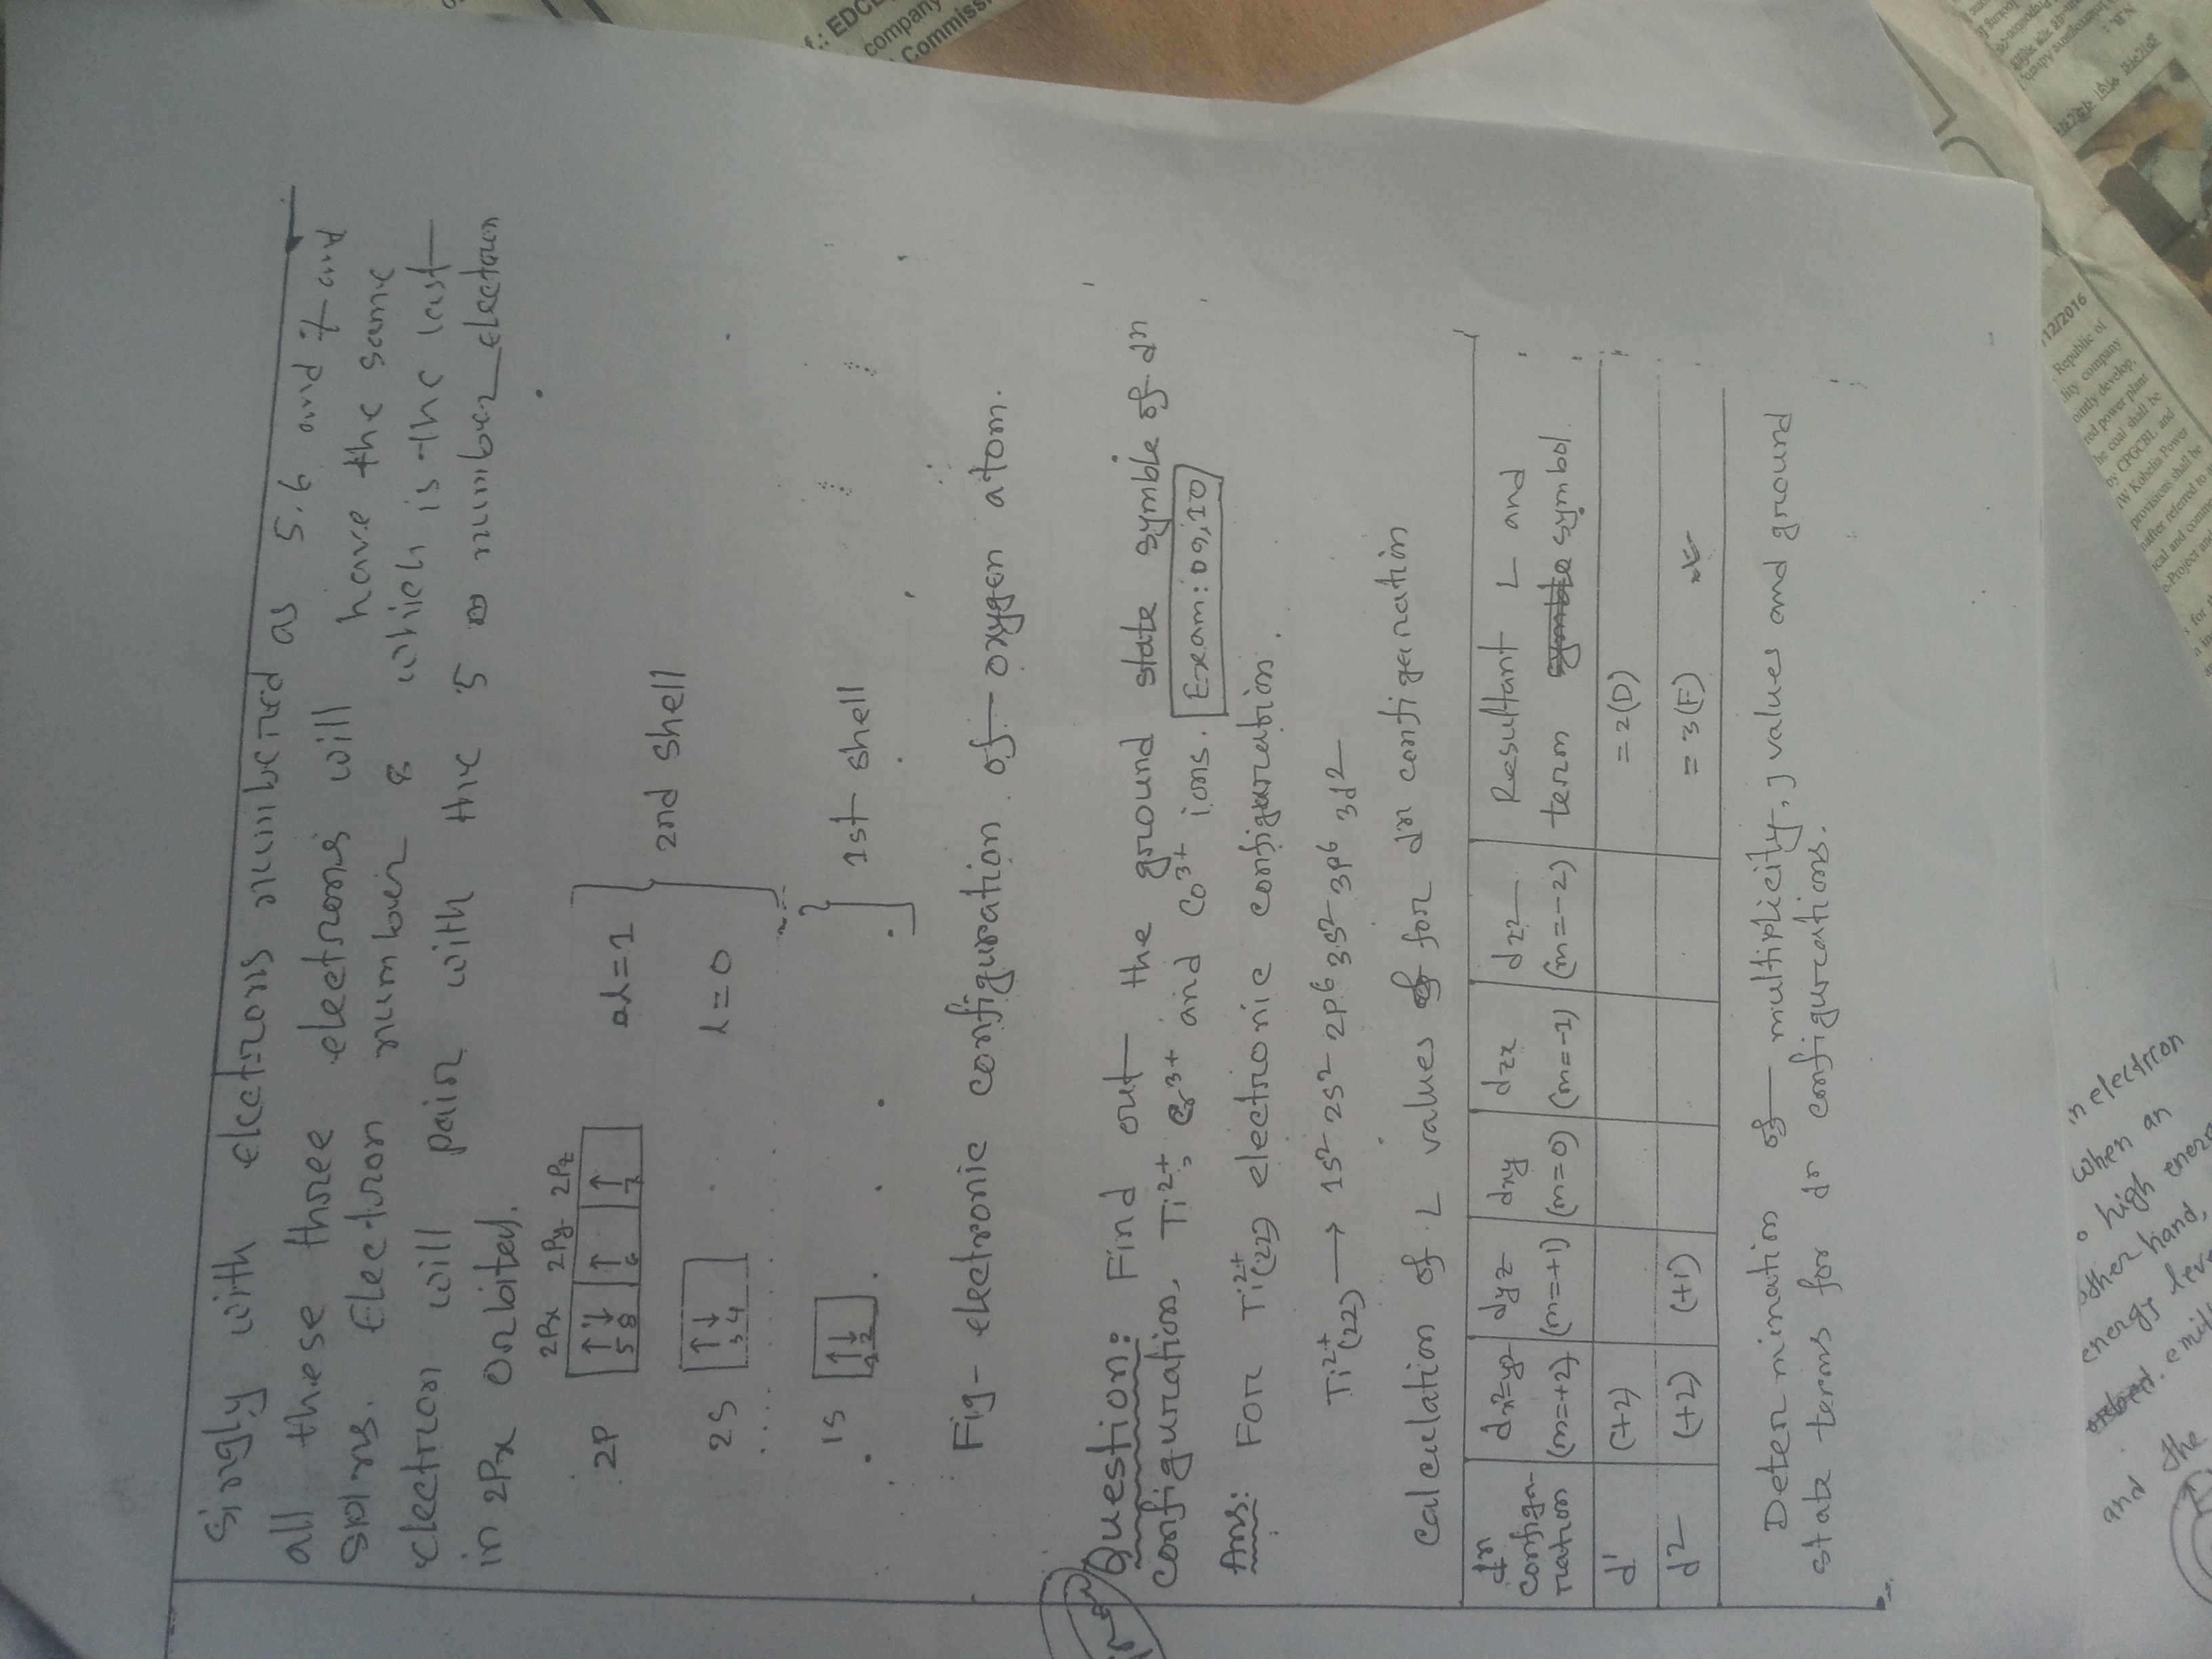 singly with electrons numbered as 5.6 and 7 and
all these three electrons will have the same
spins. Electron number 8 which is the last
electron will pair with the 5 number electron
in 2Px orbital.
2Px 2Py 2Pz
2P ↑↓ ↑ ↑ l=1
5 8 6 7
2nd shell
2S ↑↓ l=0
3 4
1S ↑↓ 1st shell
1 2
Fig- electronic configuration of oxygen atom.
Question: Find out the ground state symble of dⁿ
configuration. Ti²⁺, Cr³⁺ and Co³⁺ ions. Exam: 09,10
Ans: For Ti²⁺(22) electronic configuration.
Ti²⁺(22) → 1s² 2s² 2p⁶ 3s² 3p⁶ 3d²
Calculation of L values for dⁿ configuration
dⁿ configu-ration dx²-y² (m=+2) dyz (m=+1) dxy (m=0) dzx (m=-1) dz² (m=-2) Resultant L and term symbol.
d¹ (+2) = 2(D)
d² (+2) (+1) = 3(F)
Determination of multiplicity, J values and ground
state terms for dⁿ configurations.
in electron
When an
o high
other hand,
energy
and the
f.: EDC
company
Commiss
/12/2016
Republic of
company
ointly develop,
red power plant
he coal shall be
by CPGCBL and
(W Kohelia Power
provisions shall be
nafter referred to
ical and
o-Project and